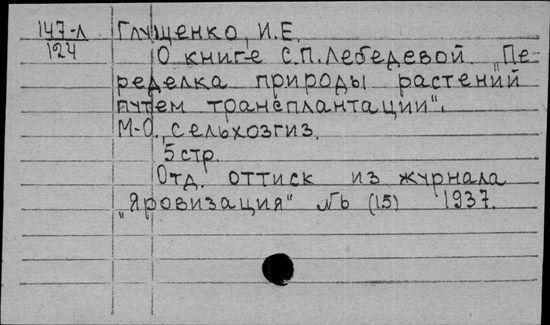 147-л Глущенко, И.Е.
124
О книге С.П.Лебедевой „Пе-
ределка природы растений
путем трансплантации".
М-О., сельхозгиз.
5 стр.
Отд. оттиск из журнала
„Яровизация" №6 (15) 1937.